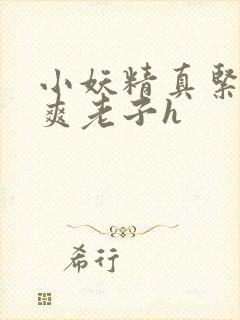 小妖精真緊
爽老子h
希行